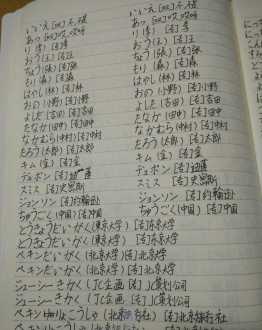 いいえ [叹] 不,不是
あっ [叹] 哎,哎呀
り(李) [名] 李
おう(王) [名] 王
ちょう(張) [名] 张
もり(森) [名] 森
はやし(林) [名] 林
おの(小野) [名] 小野
よしだ(吉田) [名] 吉田
たなか(田中) [名] 田中
なかむら(中村) [名] 中村
たろう(太郎) [名] 太郎
キム(金) [名] 金
デュポン [名] 迪蓬
スミス [名] 史密斯
ジョンソン [名] 约翰逊
ちゅうごく(中国) [名] 中国
とうきょうだいがく(東京大学) [名] 东京大学
とうきょうだいがく(東京大学) [名] 东京大学
ペキンだいがく(北京大学) [名] 北京大学
ペキンだいがく(北京大学) [名] 北京大学
ジェーシーきかく(JC企画) [名] JC策划公司
ジェーシーきかく(JC企画) [名] JC策划公司
[名] 北京旅行社
いいえ [叹] 不,不是
あっ [叹] 哎,哎呀
り(李) [名] 李
おう(王) [名] 王
ちょう(張) [名] 张
もり(森) [名] 森
はやし(林) [名] 林
おの(小野) [名] 小野
よしだ(吉田) [名] 吉田
たなか(田中) [名] 田中
なかむら(中村) [名] 中村
たろう(太郎) [名] 太郎
キム(金) [名] 金
デュポン [名] 迪蓬
スミス [名] 史密斯
ジョンソン [名] 约翰逊
ちゅうごく(中国) [名] 中国